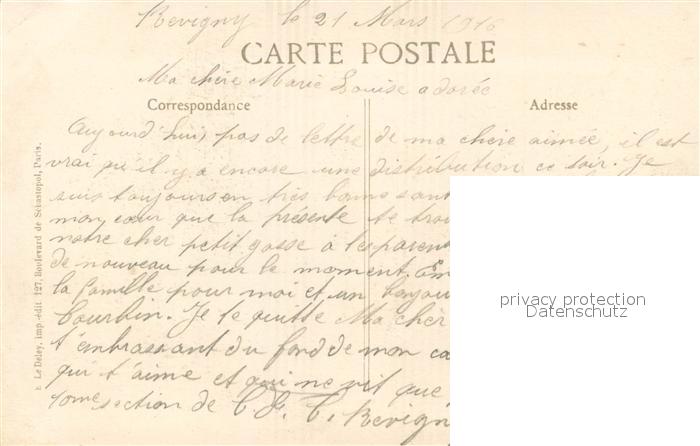 Revigny le 21 Mars 1916
CARTE POSTALE
Ma chère Marie Louise adorée
Correspondance
Adresse
Aujourd'hui pas de lettre de ma chère aimée, il est
vrai qu'il y a encore une distribution ce soir. Je
suis toujours en très bonne sant
mon cœur que la présente te trou
notre cher petit gosse à tes parens
de nouveau pour le moment. Em
la famille pour moi et un bonjou
Courbin. Je te quitte Ma chèr
t'embrassant du fond de mon cœ
qui t'aime et qui ne vit que
section de C. Revign
Le Deley, imp.-édit. 127, Boulevard de Sébastopol, Paris.
privacy protection
Datenschutz